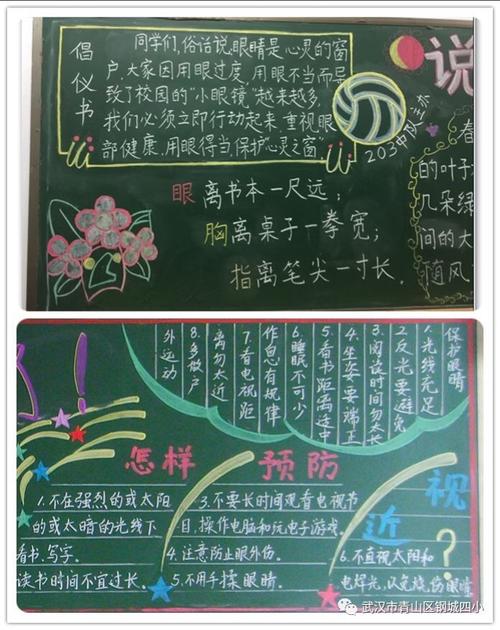 倡仪书
同学们,俗话说,眼睛是心灵的窗
户,大家因用眼过度,用眼不当而导
致了校园的“小眼镜”越来越多,
我们必须立即行动起来,重视眼
部健康,用眼得当,保护“心灵之窗”。
203中队主办
说
春
的叶子
几朵绿
间的大
随风
眼离书本一尺远;
胸离桌子一拳宽;
指离笔尖一寸长。
保护眼睛
1.光线充足
2.反光要避免
3.阅读时间勿太长
4.坐姿要端正
5.看书距离适中
6.睡眠不可少
作息有规律
7.看电视距
离勿太近
8.多做户
外运动
怎样预防
近视?
1.不在强烈的或太阳
的或太暗的光线下
看书、写字。
读书时间不宜过长。
3.不要长时间观看电视节
目,操作电脑和玩电子游戏。
4.注意防止眼外伤。
5.不用手揉眼睛。
6.不直视太阳和
电焊光,以免烧伤眼睛
武汉市青山区钢城四小